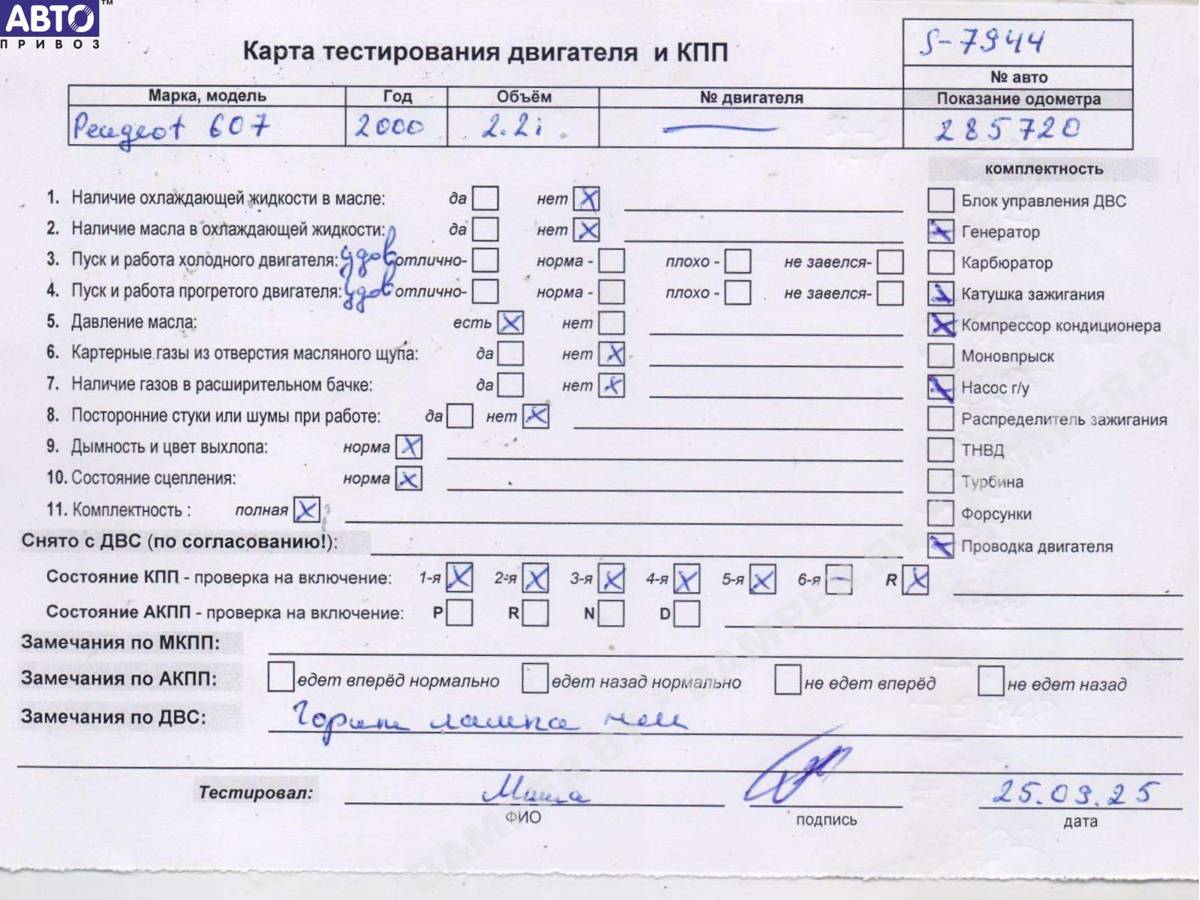 АВТО™
ПРИВОЗ
Карта тестирования двигателя и КПП
S-7944
№ авто
Марка, модель Год Объём № двигателя Показание одометра
Peugeot 607 2000 2.2i — 285720
комплектность
1. Наличие охлаждающей жидкости в масле: да нет X
2. Наличие масла в охлаждающей жидкости: да нет X
3. Пуск и работа холодного двигателя: удов отлично- норма - плохо - не завелся-
4. Пуск и работа прогретого двигателя: удов отлично- норма - плохо - не завелся-
5. Давление масла: есть X нет
6. Картерные газы из отверстия масляного щупа: да нет X
7. Наличие газов в расширительном бачке: да нет X
8. Посторонние стуки или шумы при работе: да нет X
9. Дымность и цвет выхлопа: норма X
10. Состояние сцепления: норма X
11. Комплектность : полная X
Блок управления ДВС
X Генератор
Карбюратор
X Катушка зажигания
X Компрессор кондиционера
Моновпрыск
X Насос г/у
Распределитель зажигания
ТНВД
Турбина
Форсунки
X Проводка двигателя
Снято с ДВС (по согласованию!):
Состояние КПП - проверка на включение: 1-я X 2-я X 3-я X 4-я X 5-я X 6-я – R X
Состояние АКПП - проверка на включение: P R N D
Замечания по МКПП:
Замечания по АКПП: едет вперёд нормально едет назад нормально не едет вперёд не едет назад
Замечания по ДВС: Горит лампа
Тестировал: Миша 25.03.25
ФИО подпись дата
BAMPER.BY